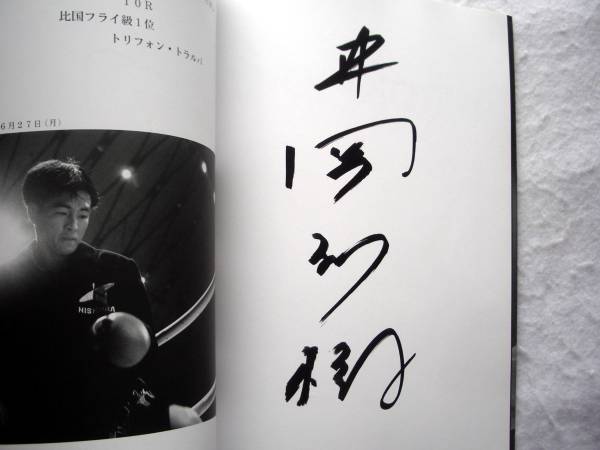 10R
比国フライ級1位
トリフォン・トラルバ
6月27日(月)
井岡弘樹